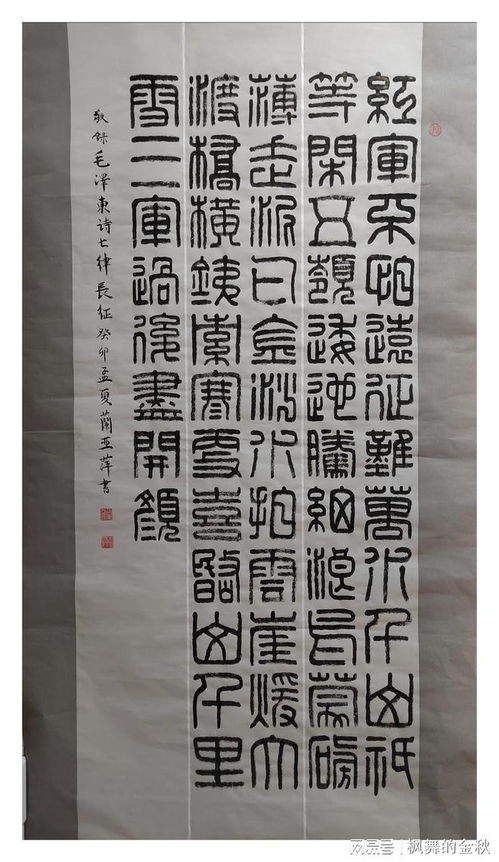 紅軍不怕遠征難萬水千山祇
等閑五嶺逶迤騰細浪烏蒙磅
薄走泥丸金沙水拍雲崖暖大
渡橋橫鐵索寒更喜岷山千里
雪三軍過後盡開顏
敬録毛澤東诗七律長征癸卯孟夏蘭亚萍書
网易号 | 枫舞的金秋